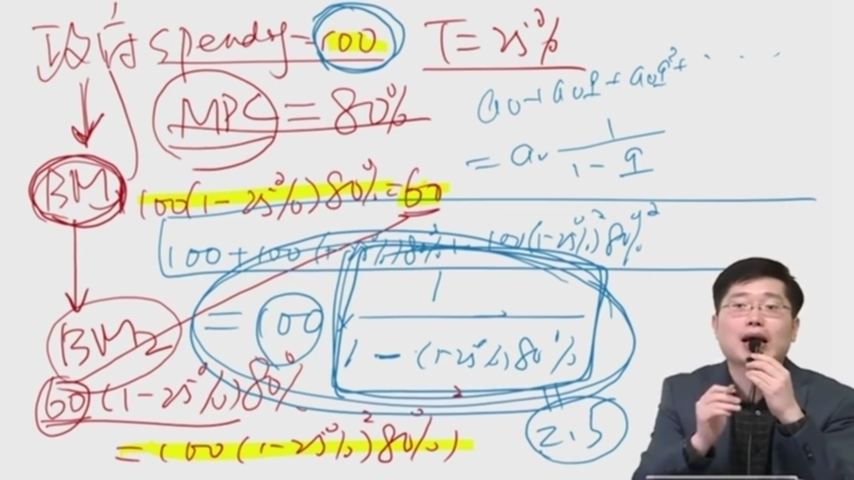 政府 spendg=100 T=25%
MPC=80%
a₀+a₀q+a₀q²+……
=a₀ 1/(1-q)
BM₁ 100(1-25%)80%=60
100+100(1-25%)80%+100(1-25%)²80%²
=100 × 1/(1-(1-25%)80%)
BM₂
60(1-25%)80%
=(100(1-25%)²80%²)
2.5